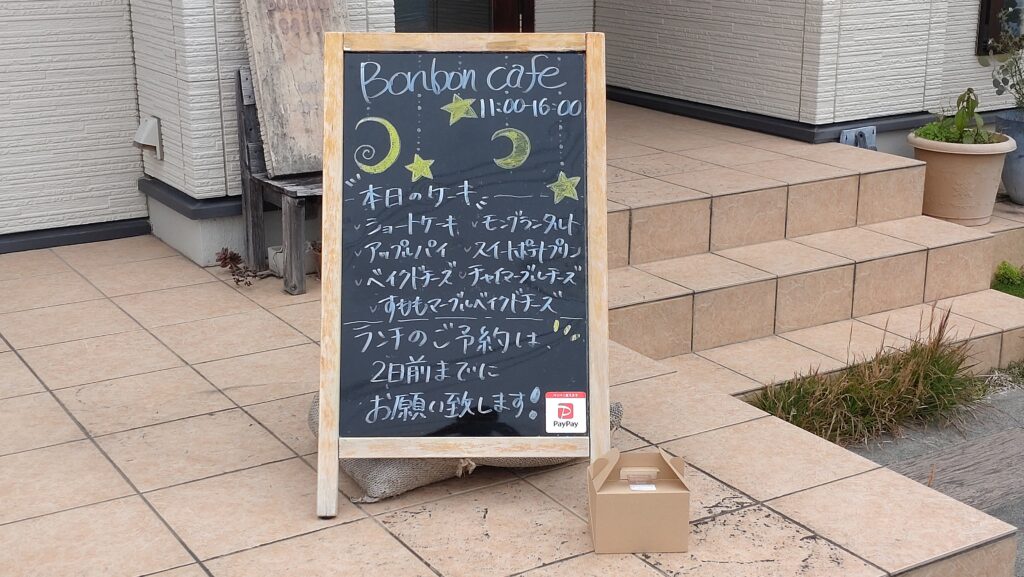 Bonbon cafe
11:00-16:00
本日のケーキ
ショートケーキ ✓モンブランタルト
✓アップルパイ ✓スイートポテトプリン
✓ベイクドチーズ ✓チャイマーブルチーズ
✓すももマーブルベイクドチーズ
ランチのご予約は、
2日前までに
お願い致します!
PayPay